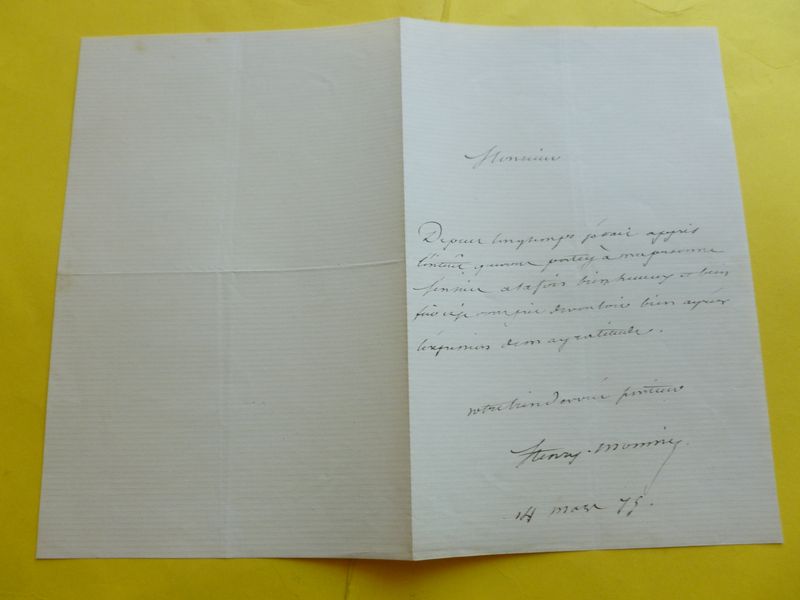 Monsieur
Depuis longtemps j'avais appris
l'intérêt que vous portez à ma personne
à la fois bien heureux et bien
vous prie de vouloir bien agréer
l'expression de ma gratitude.
votre bien dévoué serviteur
Henry Monnier.
14 mars 75.